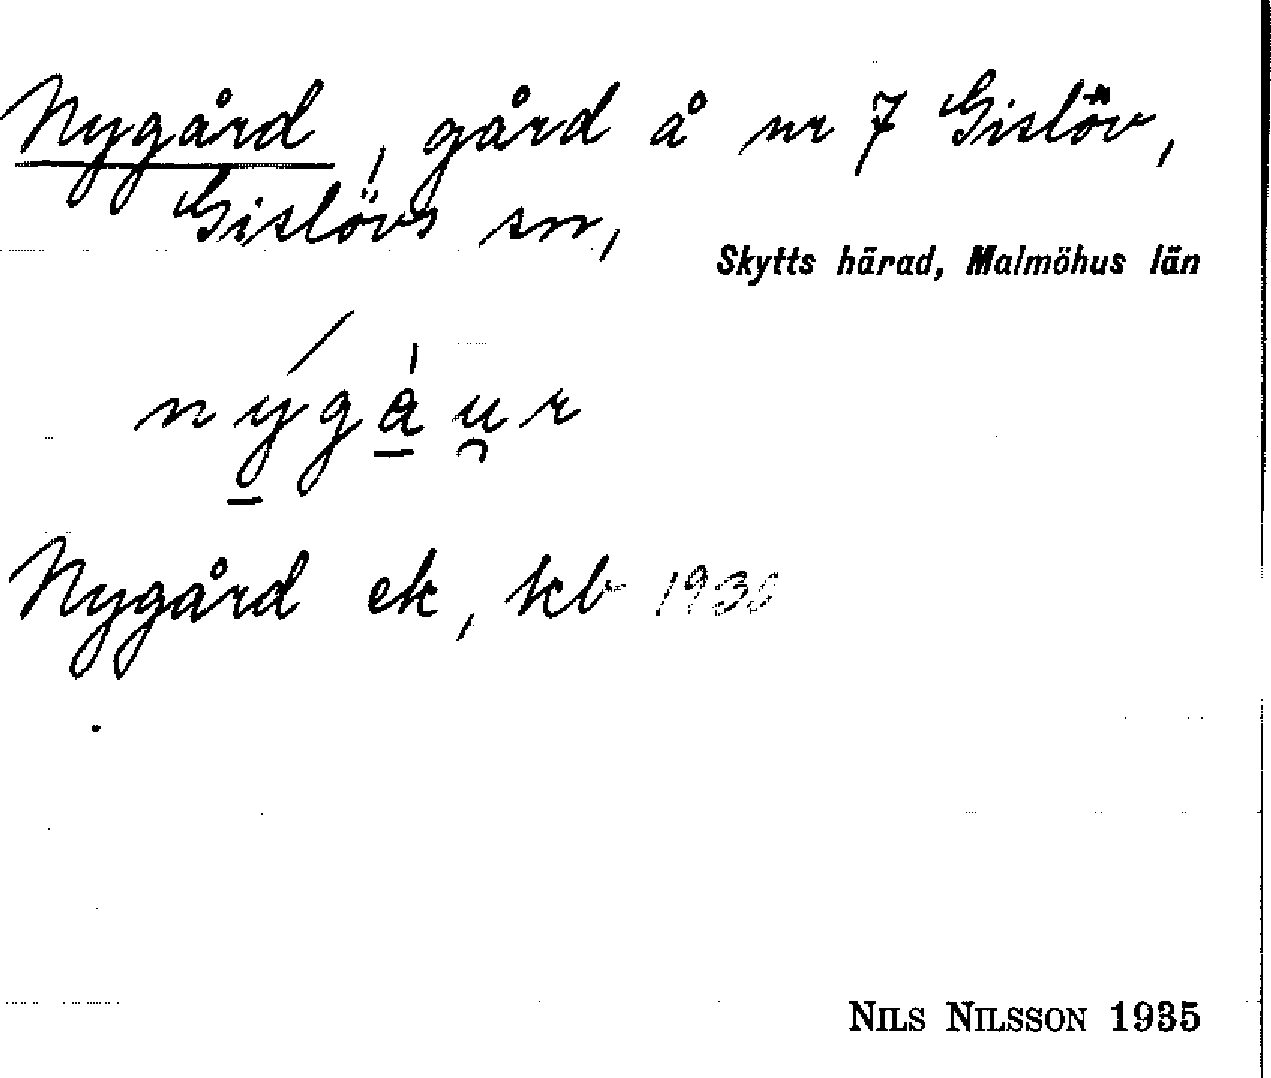 Nygård, gård å nr 7 Gislöv,
Gislövs sn,
Skytts härad, Malmöhus län
nýgáu̯r
Nygård ek, kb 1930
NILS NILSSON 1935